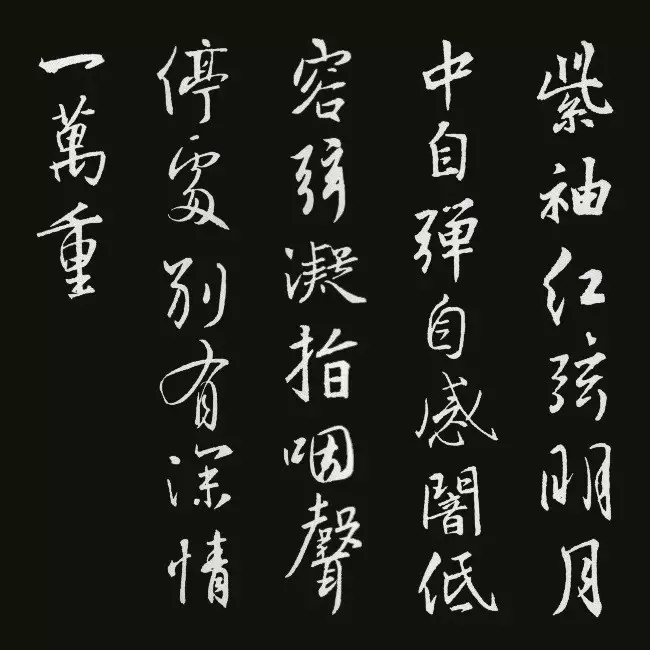 紫袖红弦明月
中自弹自感闇低
容弦凝指咽聲
停處别有深情
一萬重